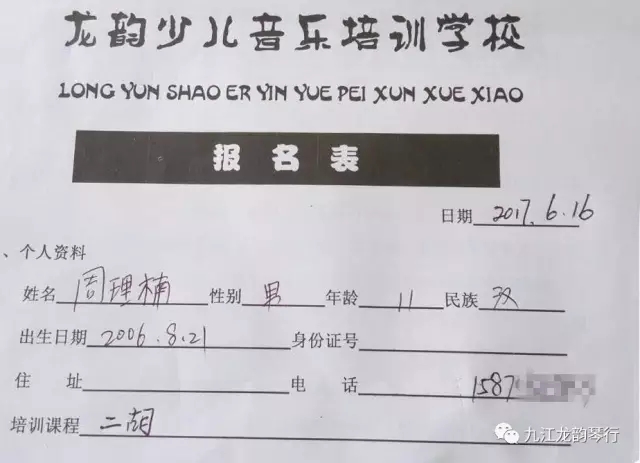 龙韵少儿音乐培训学校
LONG YUN SHAO ER YIN YUE PEI XUN XUE XIAO
报名表
日期 2017.6.16
、个人资料
姓名 周理楠 性别 男 年龄 11 民族 汉
出生日期 2006.8.21 身份证号
住 址 电 话 1587
培训课程 二胡
九江龙韵琴行